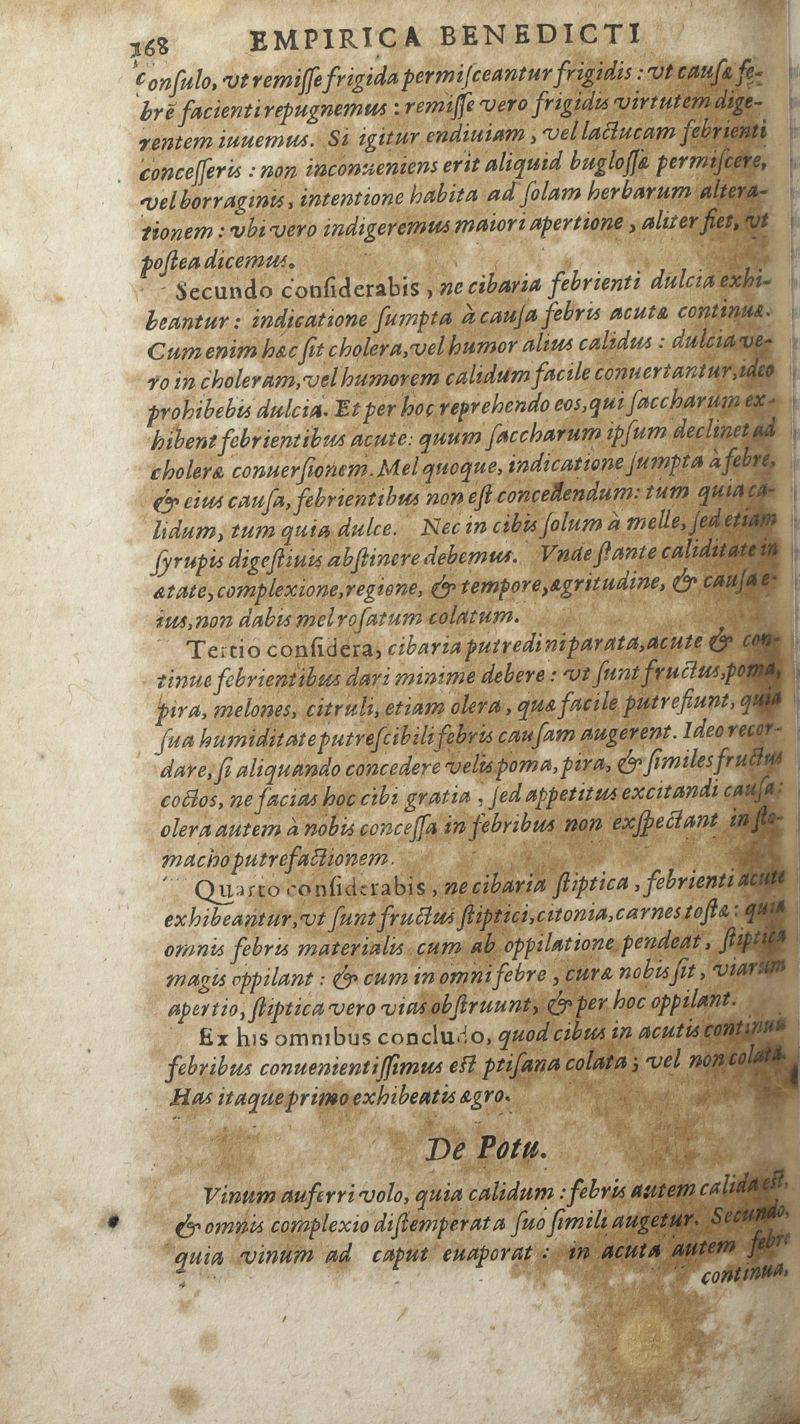 168 EMPIRICA BENEDICTI
consulo, vt remisse frigida permisceantur frigidis : vt causæ fe-
brē facienti repugnemus : remisse vero frigidis virtutem dige-
rentem iuuemus. Si igitur endiuiam, vel lactucam febrienti
concesseris : non inconueniens erit aliquid buglossæ permiscere,
vel borraginis, intentione habita ad solam herbarum altera-
tionem : vbi vero indigeremus maiori apertione, aliter fiet, vt
postea dicemus.
Secundo considerabis, ne cibaria febrienti dulcia exhi-
beantur : indicatione sumpta à causa febris acutæ continuæ.
Cum enim hæc sit cholera, vel humor alius calidus : dulcia ve-
ro in choleram, vel humorem calidum facile conuertantur, ideo
prohibebis dulcia. Et per hoc reprehendo eos, qui saccharum ex-
hibent febrientibus acute : quum saccharum ipsum declinet ad
choleræ conuersionem. Mel quoque, indicatione sumpta à febre,
& eius causa, febrientibus non est concedendum: tum quia ca-
lidum, tum quia dulce. Nec in cibis solum à melle, sed etiam
syrupis digestiuis abstinere debemus. Vnde stante caliditate in
ætate, complexione, regione, & tempore, ægritudine, & causa e-
ius, non dabis mel rosatum colatum.
Tertio considera, cibaria putredini parata, acute & con-
tinue febrientibus dari minime debere : vt sunt fructus, poma,
pira, melones, citruli, etiam olera, quæ facile putrefiunt, quia
sua humiditate putrescibili febris causam augerent. Ideo recor-
dare, si aliquando concedere velis poma, pira, & similes fructus
coctos, ne facias hoc cibi gratia, sed appetitus excitandi causa :
olera autem à nobis concessa in febribus non exspectant in sto-
macho putrefactionem.
Quarto considerabis, ne cibaria stiptica, febrienti acute
exhibeantur, vt sunt fructus stiptici, citonia, carnes tostæ : quia
omnis febris materialis cum ab oppilatione pendeat, stiptica
magis oppilant : & cum in omni febre, curæ nobis sit, viarum
apertio, stiptica vero vias obstruunt, & per hoc oppilant.
Ex his omnibus concludo, quod cibus in acutis continuis
febribus conuenientissimus est ptisana colata ; vel non colata.
Has itaque primo exhibeatis ægro.
De Potu.
Vinum auferri volo, quia calidum : febris autem calida est,
& omnis complexio distemperata suo simili augetur. Secundo,
quia vinum ad caput euaporat : in acuta autem febre
continua,